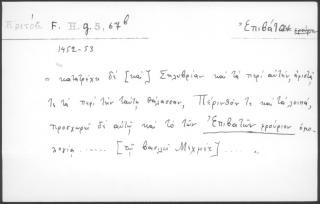 Κριτόβ. F. II. g. 5, 67β
Ἐπιβάται φρούριον
1452-53
" κατατρέχει δὲ [καὶ] Σηλυβρίαν καὶ τὰ περὶ αὐτήν,
τε τὰ περὶ τὴν ταύτῃ θάλασσαν, Πέρινθόν τε καὶ τὰ λοιπά,
προσχωρεῖ δὲ αὐτῇ καὶ τὸ τῶν Ἐπιβατῶν φρούριον ὁμο-
λογίᾳ ...... [τῷ βασιλεῖ Μεχμέτ] .... "